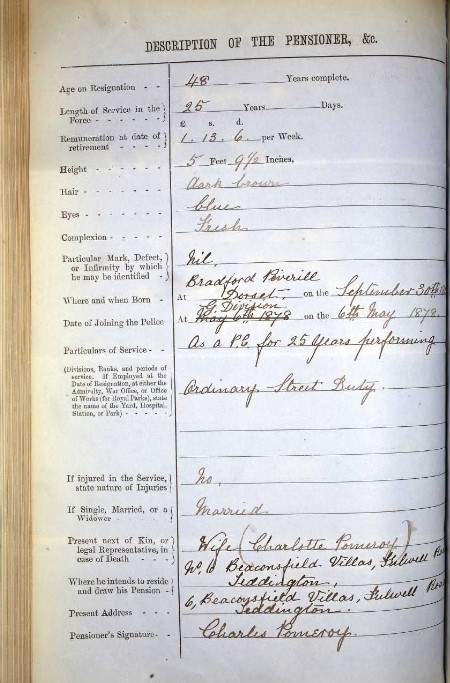 DESCRIPTION OF THE PENSIONER, &c.
Age on Resignation - - 48 Years complete.
Length of Service in the Force - - - - - - 25 Years Days.
£ s. d.
Remuneration at date of retirement - - - - 1. 13. 6. per Week.
Height - - - - - 5 Feet 9½ Inches.
Hair - - - - - - dark brown
Eyes - - - - - - blue
Complexion - - - - Fresh
Particular Mark, Defect, or Infirmity by which he may be identified - Nil.
Bradford Peverill
Where and when Born - At Dorset, on the September 30th
G. Division
Date of Joining the Police At May 6th 1878 on the 6th May 1878.
Particulars of Service - - As a P.C. for 25 Years performing
(Divisions, Ranks, and periods of
service. If Employed at the
Date of Resignation, at either the
Admiralty, War Office, or Office
of Works (for Royal Parks), state
the name of the Yard, Hospital,
Station, or Park) - - - - -
Ordinary Street Duty.
If injured in the Service, state nature of Injuries No.
If Single, Married, or a Widower - - - - - Married
Present next of Kin, or legal Representative, in case of Death - - Wife (Charlotte Pomeroy)
No. 6 Beaconsfield Villas, Fulwell Road
Where he intends to reside and draw his Pension - Teddington,
6, Beaconsfield Villas, Fulwell Road
Present Address - - - Teddington.
Pensioner's Signature- - Charles Pomeroy.